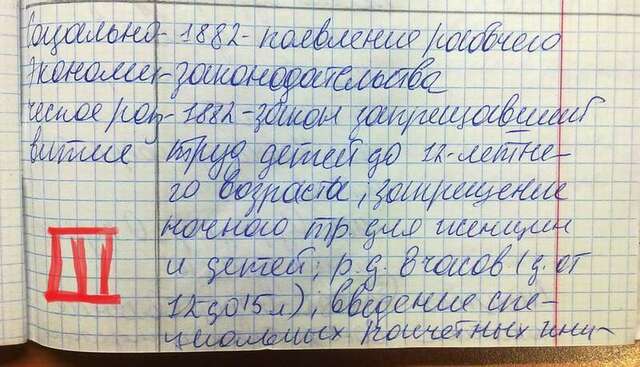 Социально- 1882- появление рабочего
экономи- законодательства
ческое раз- 1882-закон запрещавший
витие труд детей до 12-летне-
го возраста, запрещение
ночного тр. для женщин
и детей, р.д. 8 часов (д. от
12 до 15 л), введение спе-
циальных расчетных кни-
III